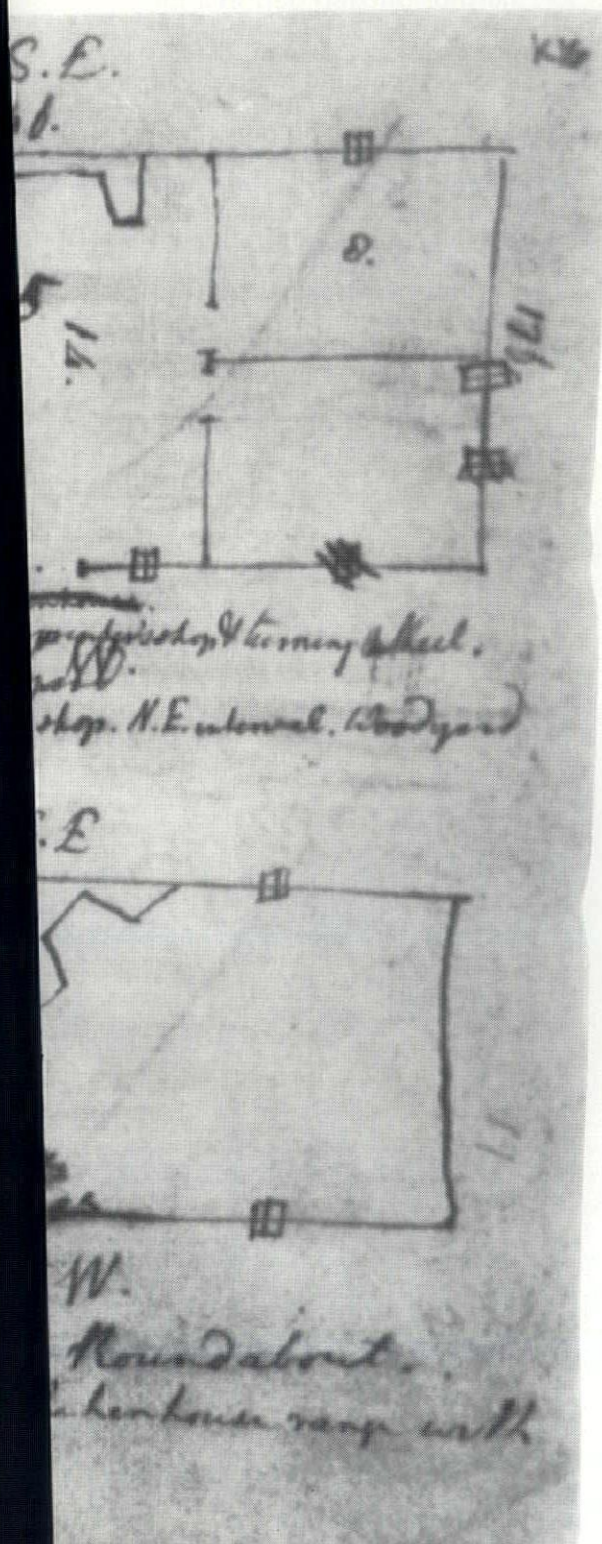 S.E.
8.
14.
17½
shop & turning wheel.
shop. N.E. internal. Woodyard
.E
17
W.
Roundabout.
henhouse range with